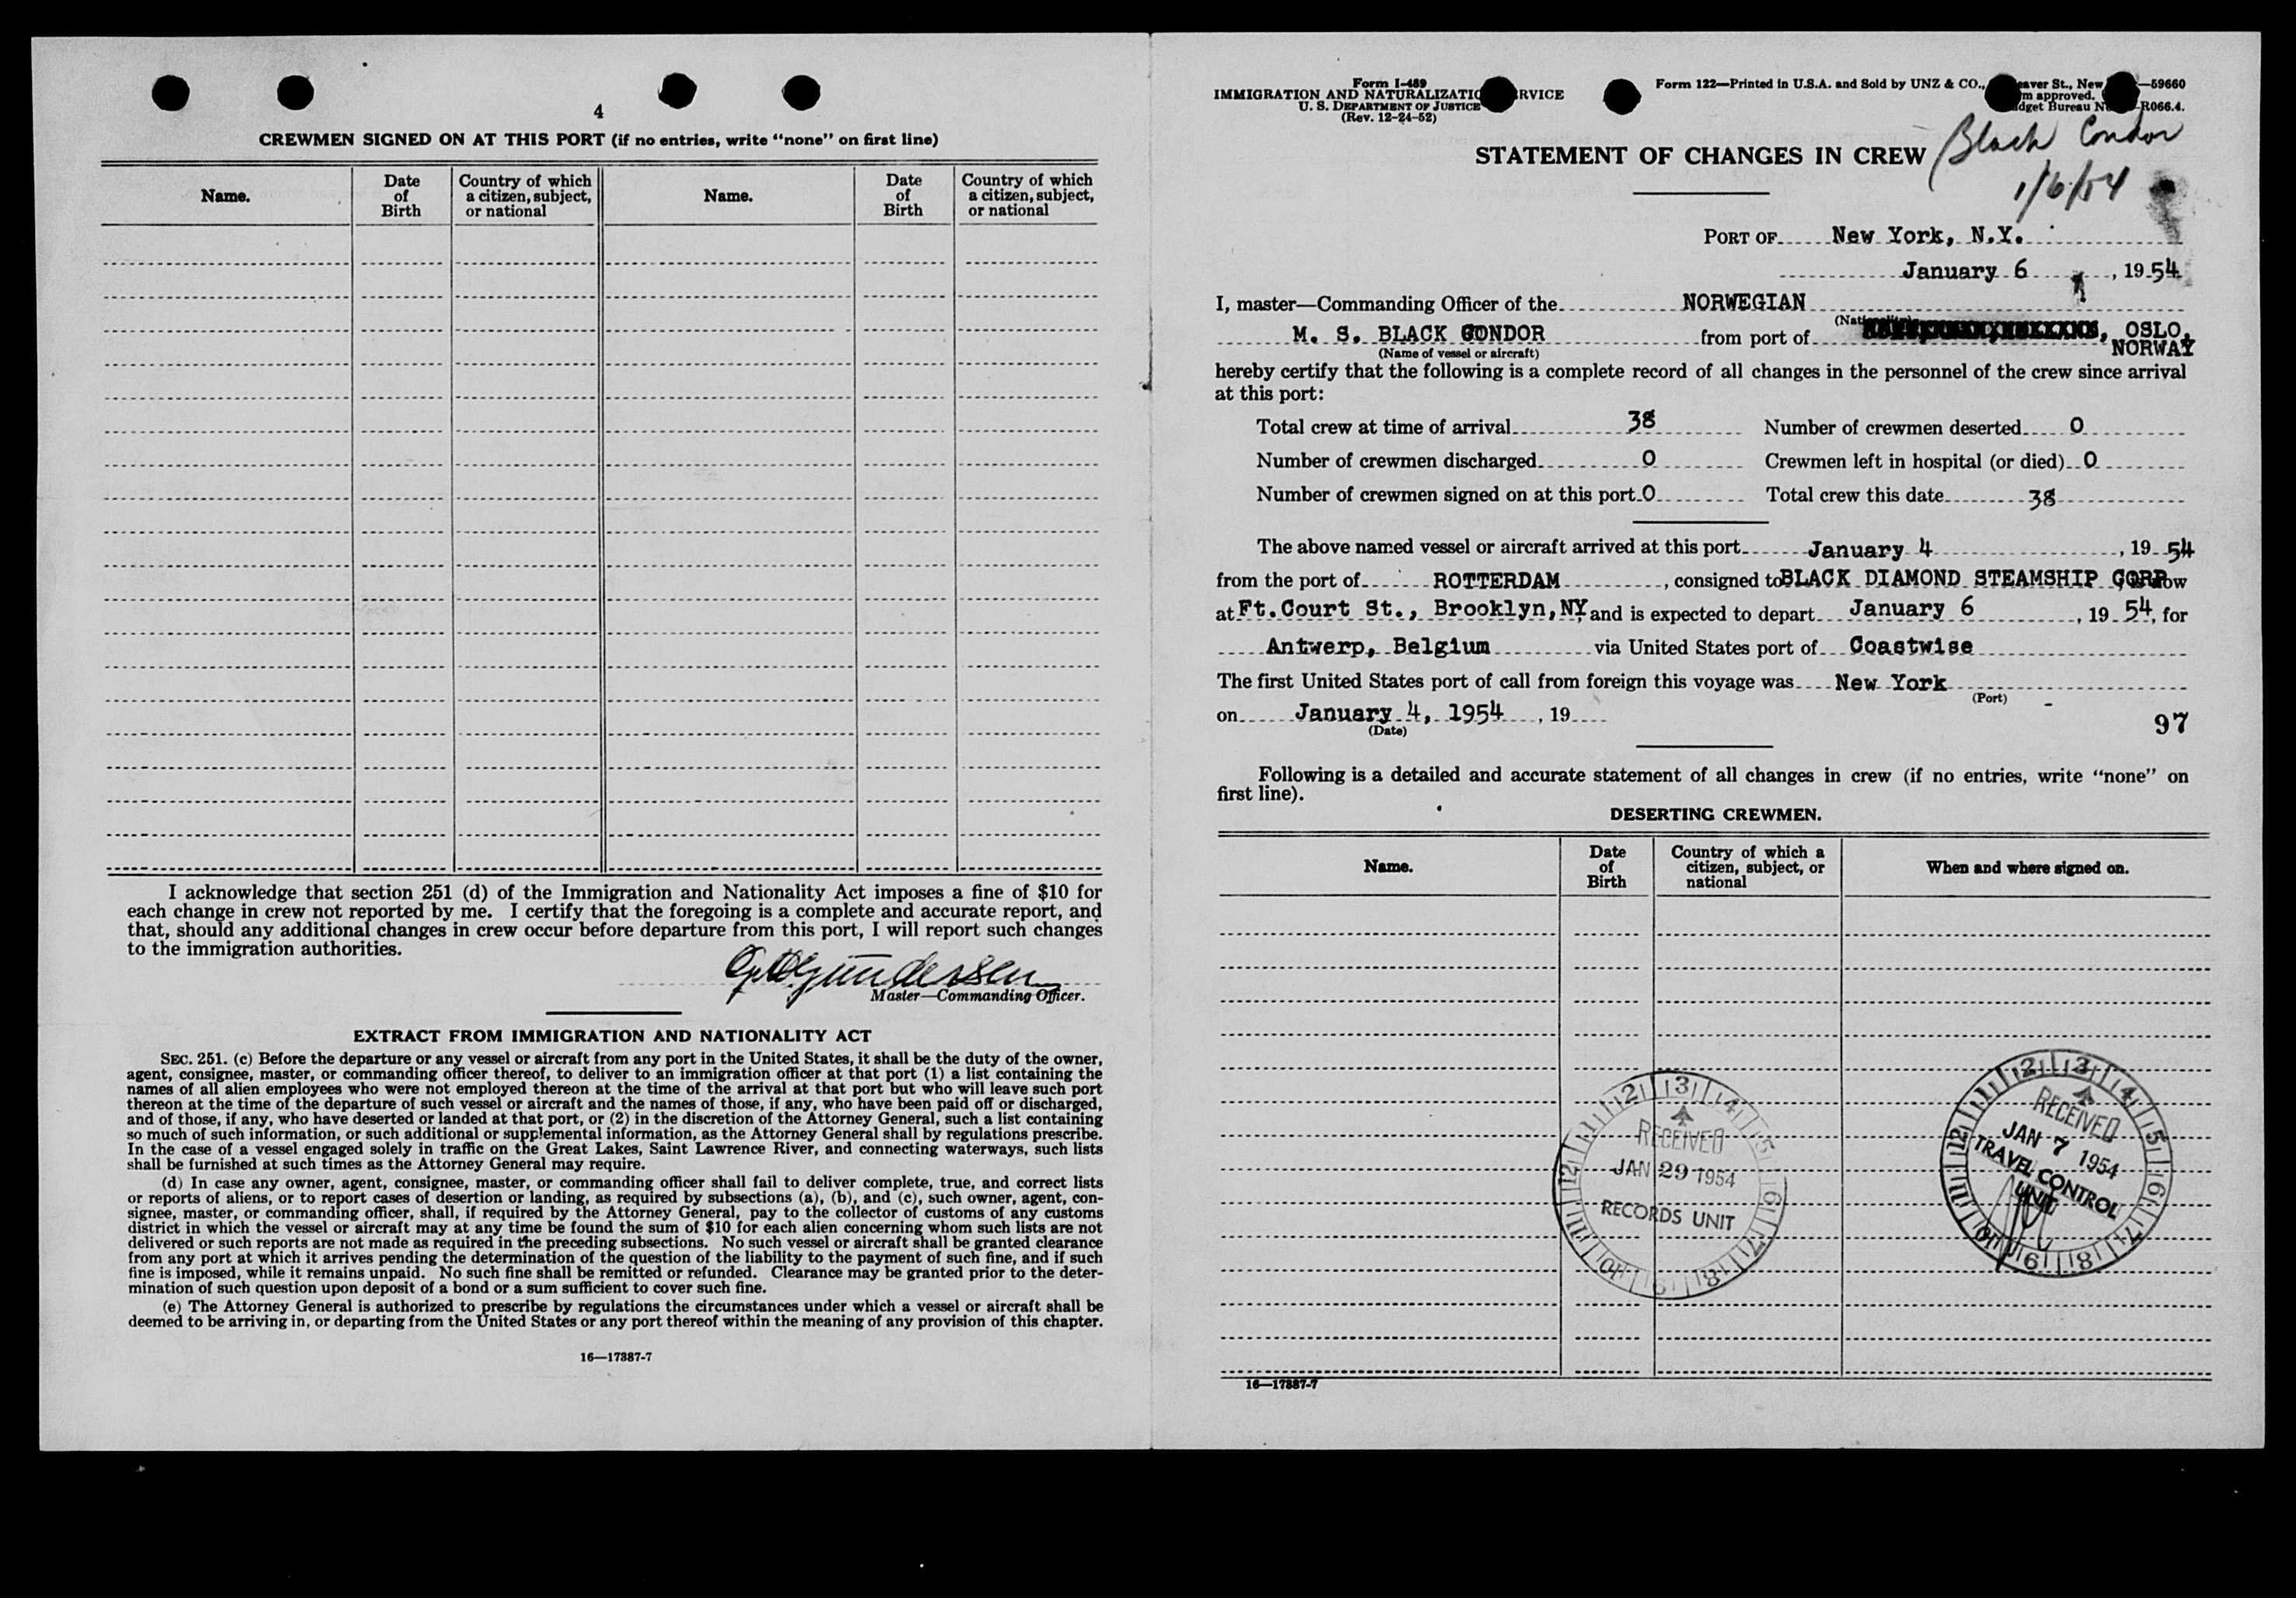 4
CREWMEN SIGNED ON AT THIS PORT (if no entries, write “none” on first line)
Name. Date of Birth Country of which a citizen, subject, or national Name. Date of Birth Country of which a citizen, subject, or national
I acknowledge that section 251 (d) of the Immigration and Nationality Act imposes a fine of $10 for
each change in crew not reported by me. I certify that the foregoing is a complete and accurate report, and
that, should any additional changes in crew occur before departure from this port, I will report such changes
to the immigration authorities.
Gundersen
Master—Commanding Officer.
EXTRACT FROM IMMIGRATION AND NATIONALITY ACT
SEC. 251. (c) Before the departure or any vessel or aircraft from any port in the United States, it shall be the duty of the owner,
agent, consignee, master, or commanding officer thereof, to deliver to an immigration officer at that port (1) a list containing the
names of all alien employees who were not employed thereon at the time of the arrival at that port but who will leave such port
thereon at the time of the departure of such vessel or aircraft and the names of those, if any, who have been paid off or discharged,
and of those, if any, who have deserted or landed at that port, or (2) in the discretion of the Attorney General, such a list containing
so much of such information, or such additional or supplemental information, as the Attorney General shall by regulations prescribe.
In the case of a vessel engaged solely in traffic on the Great Lakes, Saint Lawrence River, and connecting waterways, such lists
shall be furnished at such times as the Attorney General may require.
(d) In case any owner, agent, consignee, master, or commanding officer shall fail to deliver complete, true, and correct lists
or reports of aliens, or to report cases of desertion or landing, as required by subsections (a), (b), and (c), such owner, agent, con-
signee, master, or commanding officer, shall, if required by the Attorney General, pay to the collector of customs of any customs
district in which the vessel or aircraft may at any time be found the sum of $10 for each alien concerning whom such lists are not
delivered or such reports are not made as required in the preceding subsections. No such vessel or aircraft shall be granted clearance
from any port at which it arrives pending the determination of the question of the liability to the payment of such fine, and if such
fine is imposed, while it remains unpaid. No such fine shall be remitted or refunded. Clearance may be granted prior to the deter-
mination of such question upon deposit of a bond or a sum sufficient to cover such fine.
(e) The Attorney General is authorized to prescribe by regulations the circumstances under which a vessel or aircraft shall be
deemed to be arriving in, or departing from the United States or any port thereof within the meaning of any provision of this chapter.
16—17387-7
Form I-489
IMMIGRATION AND NATURALIZATIO RVICE
U. S. DEPARTMENT OF JUSTICE
(Rev. 12-24-52)
Form 122—Printed in U.S.A. and Sold by UNZ & CO., eaver St., New —59660
m approved.
dget Bureau N R066.4.
Black Condor
1/6/54
STATEMENT OF CHANGES IN CREW
PORT OF New York, N.Y.
January 6, 1954
I, master—Commanding Officer of the NORWEGIAN
M. S. BLACK CONDOR from port of OSLO,
NORWAY
(Name of vessel or aircraft)
hereby certify that the following is a complete record of all changes in the personnel of the crew since arrival
at this port:
Total crew at time of arrival 38 Number of crewmen deserted 0
Number of crewmen discharged 0 Crewmen left in hospital (or died) 0
Number of crewmen signed on at this port 0 Total crew this date 38
The above named vessel or aircraft arrived at this port January 4, 19 54
from the port of ROTTERDAM, consigned to BLACK DIAMOND STEAMSHIP CORP ow
at Ft. Court St., Brooklyn, NY and is expected to depart January 6, 19 54, for
Antwerp, Belgium via United States port of Coastwise
The first United States port of call from foreign this voyage was New York
(Port)
on January 4, 1954, 19
(Date)
97
Following is a detailed and accurate statement of all changes in crew (if no entries, write “none” on
first line).
DESERTING CREWMEN.
Name. Date of Birth Country of which a citizen, subject, or national When and where signed on.
RECEIVED
JAN 29 1954
RECORDS UNIT
RECEIVED
JAN 7 1954
TRAVEL CONTROL
UNIT
16—17387-7